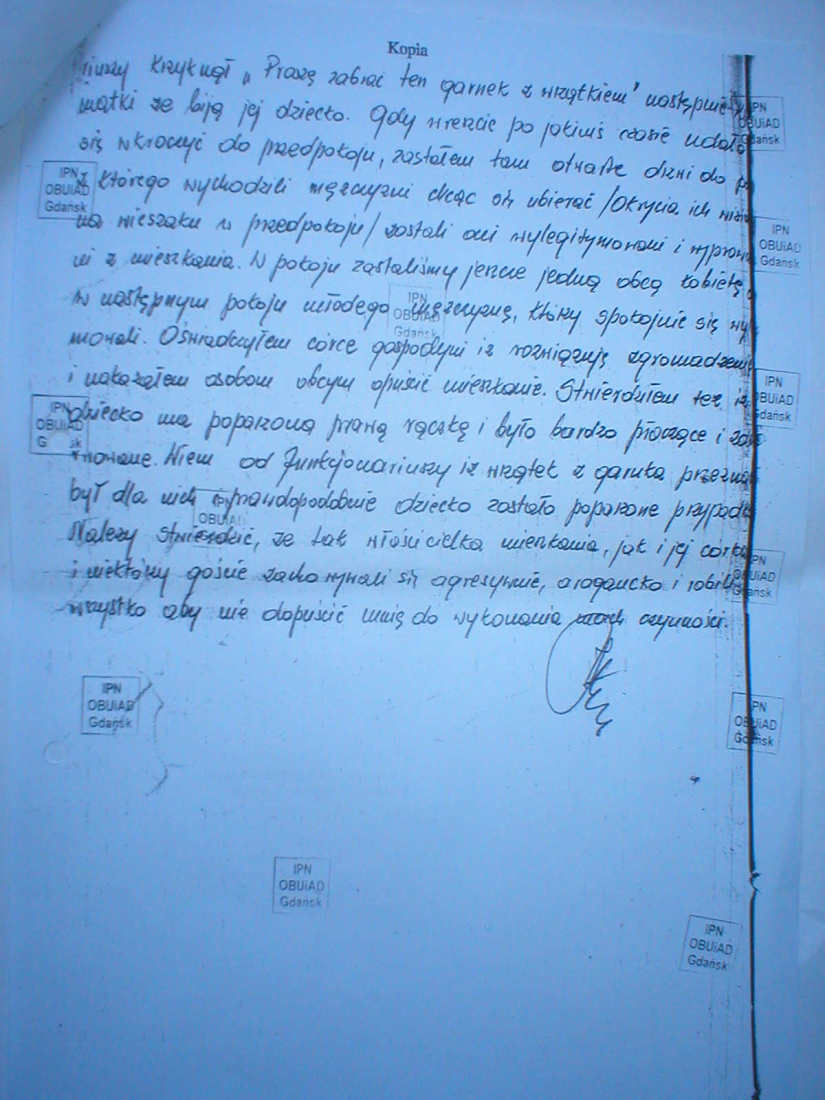 Kopia
riuszy krzyknął „Proszę zabrać ten garnek z wrzątkiem" następnie
matki że biją jej dziecko. Gdy wreszcie po jakimś czasie udało
się wkroczyć do przedpokoju, zastałem tam otwarte drzwi do
z którego wychodzili mężczyźni chcąc się ubierać /Okrycia ich
na wieszaku w przedpokoju/ zostali oni wylegitymowani i
ni z mieszkania. W pokoju zastaliśmy jeszcze jedną obcą kobietę,
w następnym pokoju młodego mężczyznę, który spokojnie się
mowali. Oświadczyłem córce gospodyni iż rozwiązuję zgromadzenie
i nakazałem osobom obcym opuścić mieszkanie. Stwierdziłem też iż
dziecko ma poparzoną prawą rączkę i było bardzo płaczące i
nowane. Wiem od funkcjonariuszy iż wrzątek z garnka
był dla nich a prawdopodobnie dziecko zostało poparzone
Należy stwierdzić, że tak właścicielka mieszkania, jak i jej córka
i niektórzy goście zachowywali się agresywnie, arogancko i robili
wszystko aby nie dopuścić mnie do wykonania czynności.
IPN
OBUiAD
Gdańsk
IPN
OBUiAD
Gdańsk
IPN
OBUiAD
Gdańsk
IPN
OBUiAD
Gdańsk
IPN
OBUiAD
Gdańsk
IPN
OBUiAD
G sk
OBUiAD
IPN
OBUiAD
Gdańsk
IPN
OBUiAD
Gdańsk
IPN
OBUiAD
Gdańsk
IPN
OBUiAD
Gdańsk
IPN
OBUiAD
Gdańsk